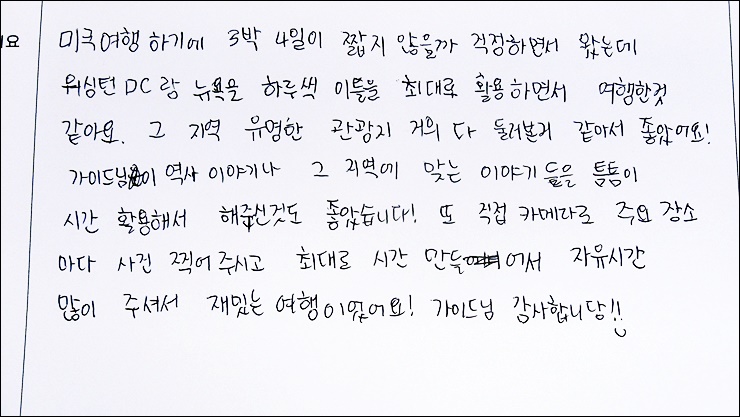 미국여행 하기에 3박 4일이 짧지 않을까 걱정하면서 왔는데
워싱턴DC랑 뉴욕을 하루씩 이틀을 최대로 활용하면서 여행한것
같아요. 그 지역 유명한 관광지 거의 다 둘러본거 같아서 좋았어요!
가이드님이 역사 이야기나 그 지역에 맞는 이야기들을 틈틈이
시간 활용해서 해주신것도 좋았습니다! 또 직접 카메라로 주요 장소
마다 사진 찍어 주시고 최대로 시간 만들어서 자유시간
많이 주셔서 재밌는 여행이었어요! 가이드님 감사합니당!!